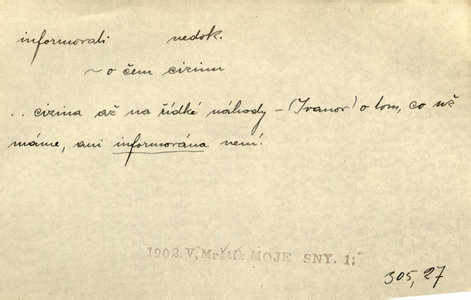 informovati nedok.
~ o čem cizinu
.. cizina až na řídké náhody – (Ivanov) o tom, co už
máme, ani informována není.
1902. V. Mrštík, MOJE SNY. 1;
305, 27